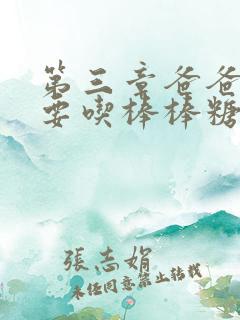 第三章爸爸
要喫棒棒糖
張志娟
未经同意禁止转载